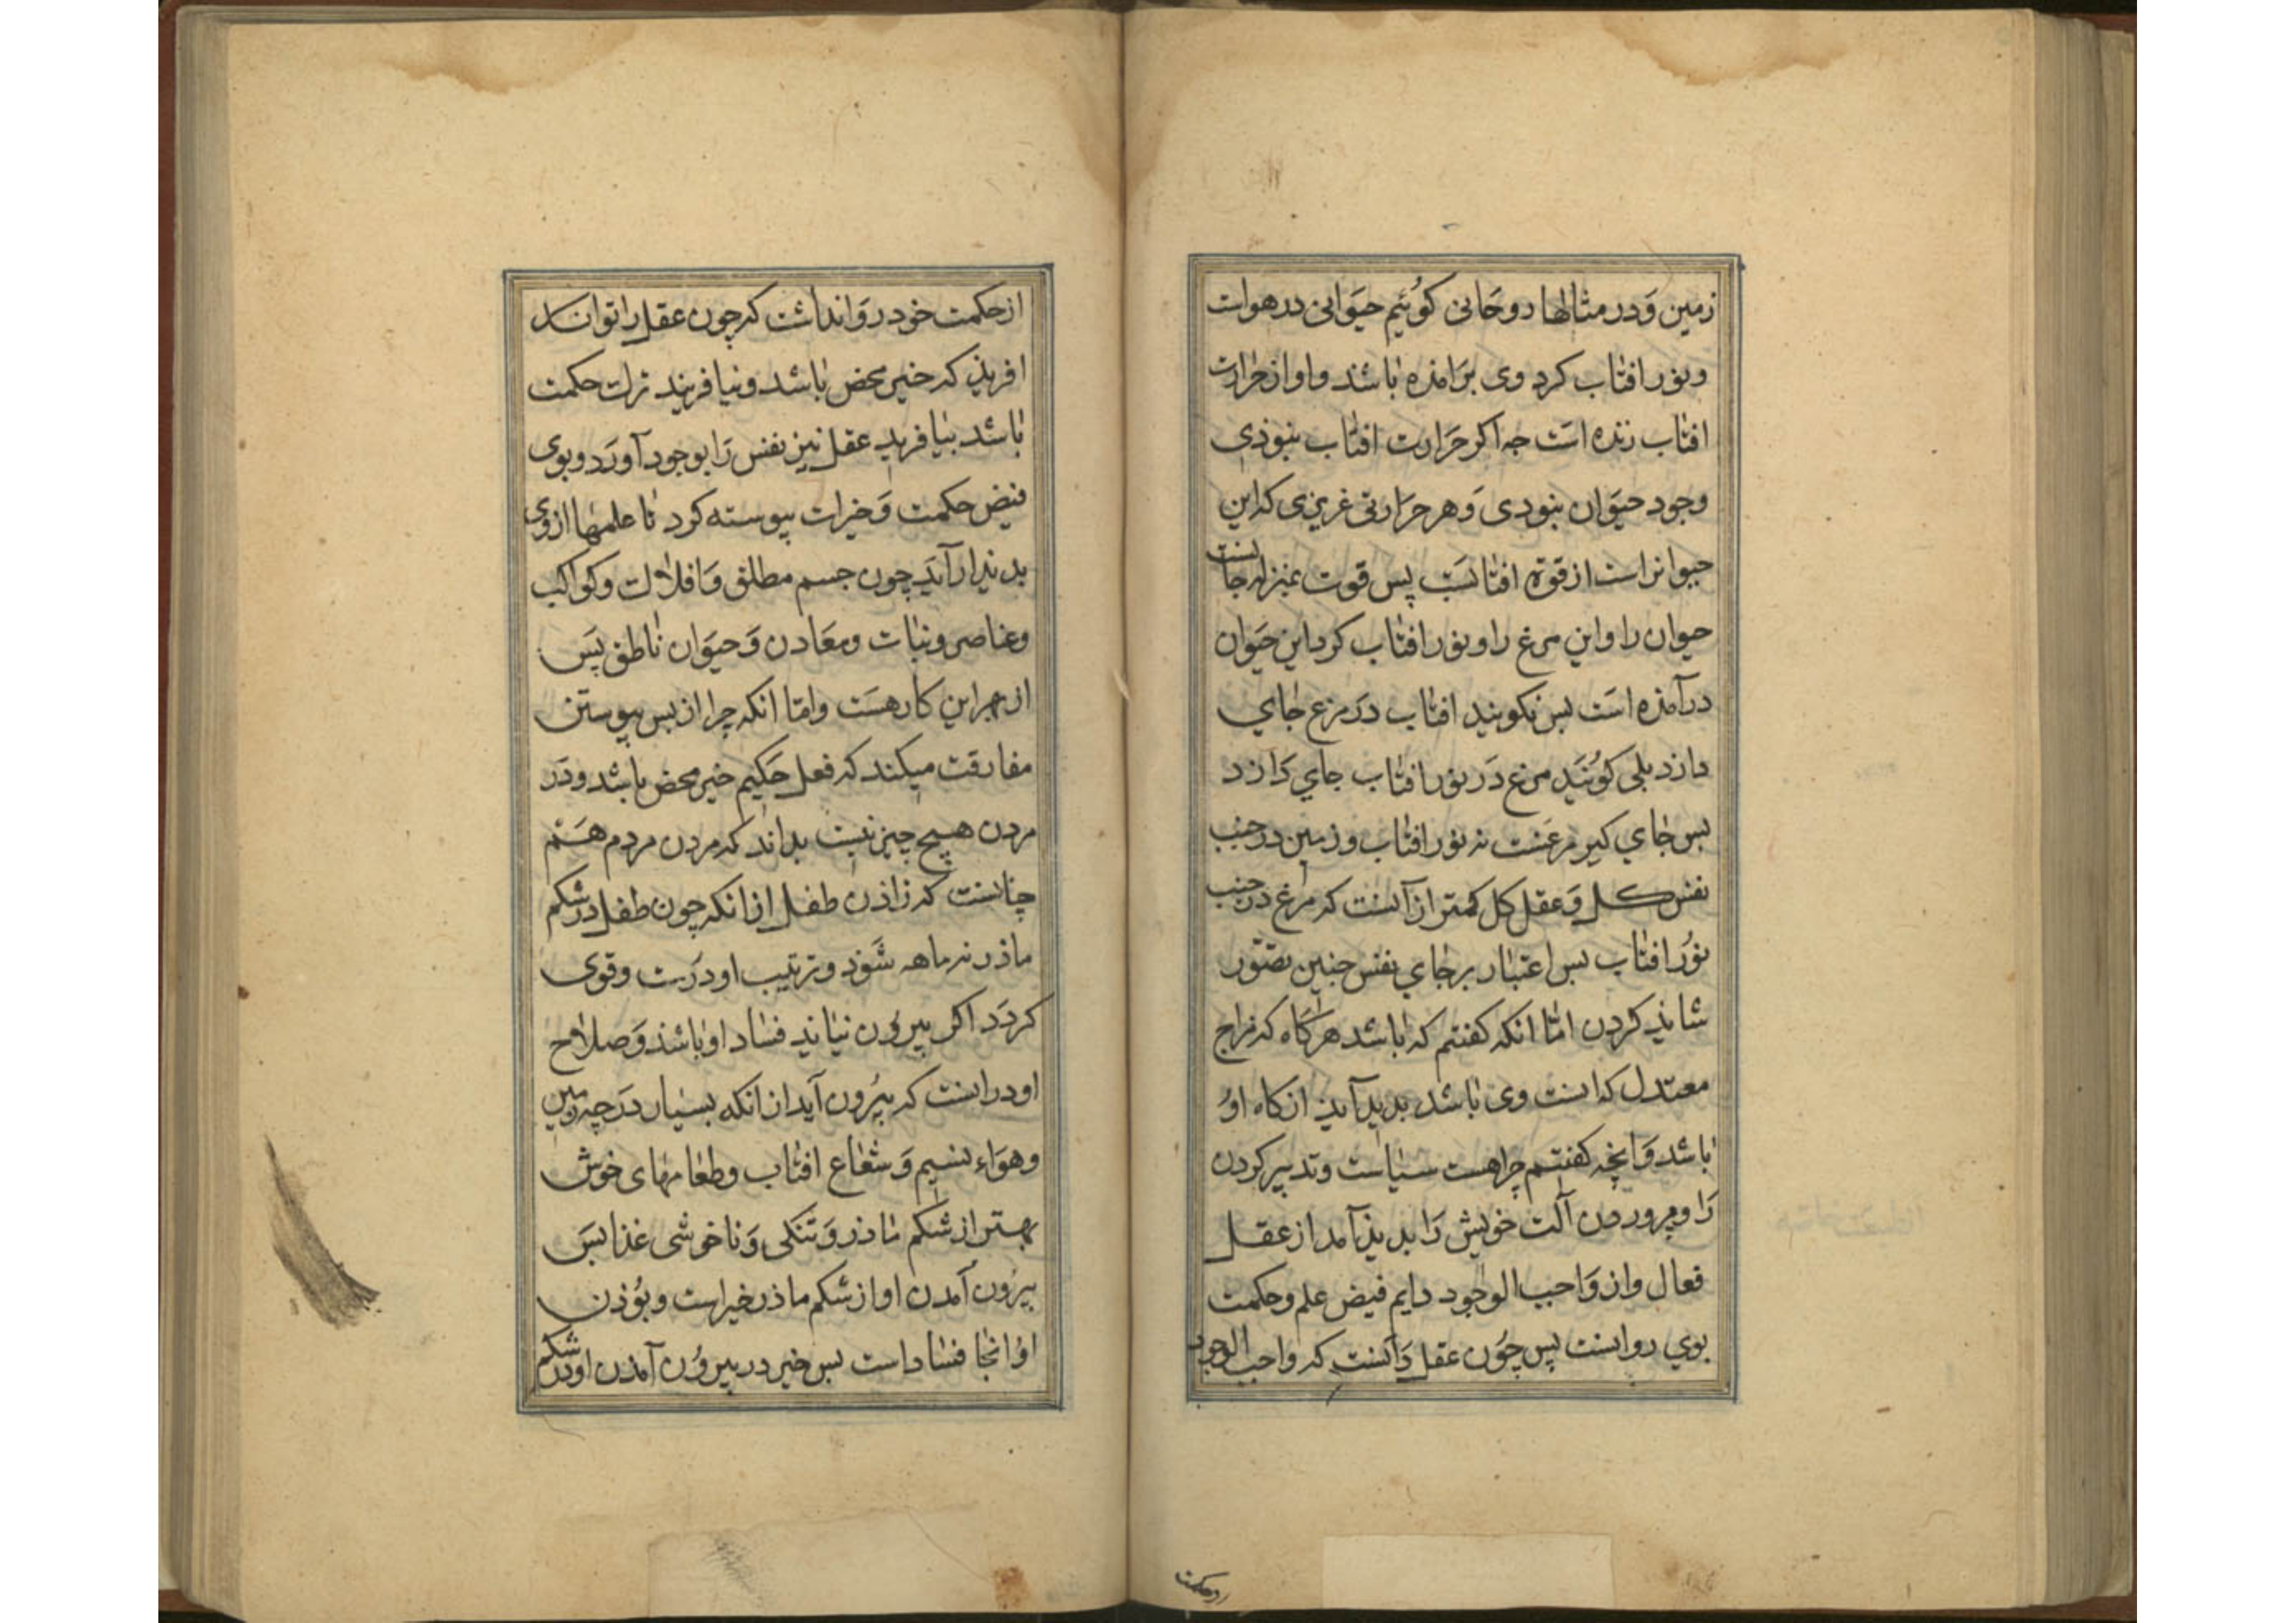 زمین وَدر مثالها روحَانی کوُییم حیَوانی درهواست
ونور افتاب کرد وی برَامذه باشد واو از حَرارت
افتاب زنده است جه اکر حرَارت افتاب نبوذی
وجود حیوَان نبودی وَهر حرَارتی غریزی که این
حیوانراست از قوة افتابست پس قوت بمنزله جانست
حیوان را واین مرغ را ونور افتاب کرد این حیَوان
درآمذه است بس نکویند افتاب در مرغ جای
دارد بلی کوُیند مرغ دَر نور افتاب جای دَارد
بس جای کیر مرغست نه نور افتاب وزمین درجنب
نفس کل وَعقل کل کمتر از آنست که مرغ در جنب
نوُر افتاب بس اعتبار بر جای نفس جنین تصوّر
شاید کردن امّا انکه کفتم که باشد هرکاه که مزاج
معتدل که است وی باشد بدید آید انکاه اوُ
باشد وَانچه کفتم چراهست سیاست وتدبیر کردن
رَا وپروردن آلت خویش رَا بدیذ آمد از عقل
فعال واز وَاجب الوجود دایم فیض علم وحکمت
بوی روانست پس چوُن عقل دَانست که واجب الوجود
از حکمت خود روَا نداشت که چون عقل را تواند
افریذ که خیر محض باشد ونیافریند ترک حکمت
باشد بیافرید عقل نیز نفس رَا بوجود آورَد وبوی
فیض حکمت وَخیرات پیوسته کرد تا علمها از وی
پدیذار آید چون جسم مطلق وَافلاک وکواکب
وعناصر ونبات ومعَادن وَحیَوان ناطق پسَ
از بهر این کار هست وامّا انکه چرا از پس پیوستن
مفارقت میکند که فعل حَکیم خیر محض باشد ودَر
مردن هیچ چیز نیست بداند که مردن مردم همَ
چنانست که زاذن طفل از انکه چون طفل در شکم
ماذر نه ماهه شوَذ وترتیب او درَست وقوی
کردَد اکر بیروُن نیاید فسَاد او باشد وَصلاح
او در انست که بیرُون آید از انکه بسیار دَرجه زمین
وهوَاء نسیم وَشعَاع افتاب وطعامهای خوش
بهتر از شکم ماذر وَتنکی وَناخوشی غذا پس
بیرون آمدن او از شکم ماذر خیراست وبوُذن
اوُ انجا فسَاد است بس خیر در بیروُن آمدن او از شکم
روحکمت